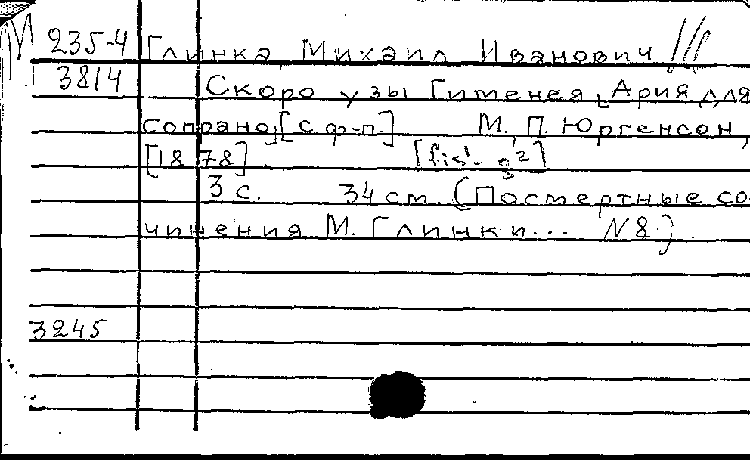 235-4 Глинка, Михаил Иванович
3814 Скоро узы Гименея. Ария для
сопрано [с ф-п.] М., П. Юргенсон,
[1878]. [fis¹- g²]
3 с. 34 см. (Посмертные со
чинения М. Глинки... N 8.)
3245